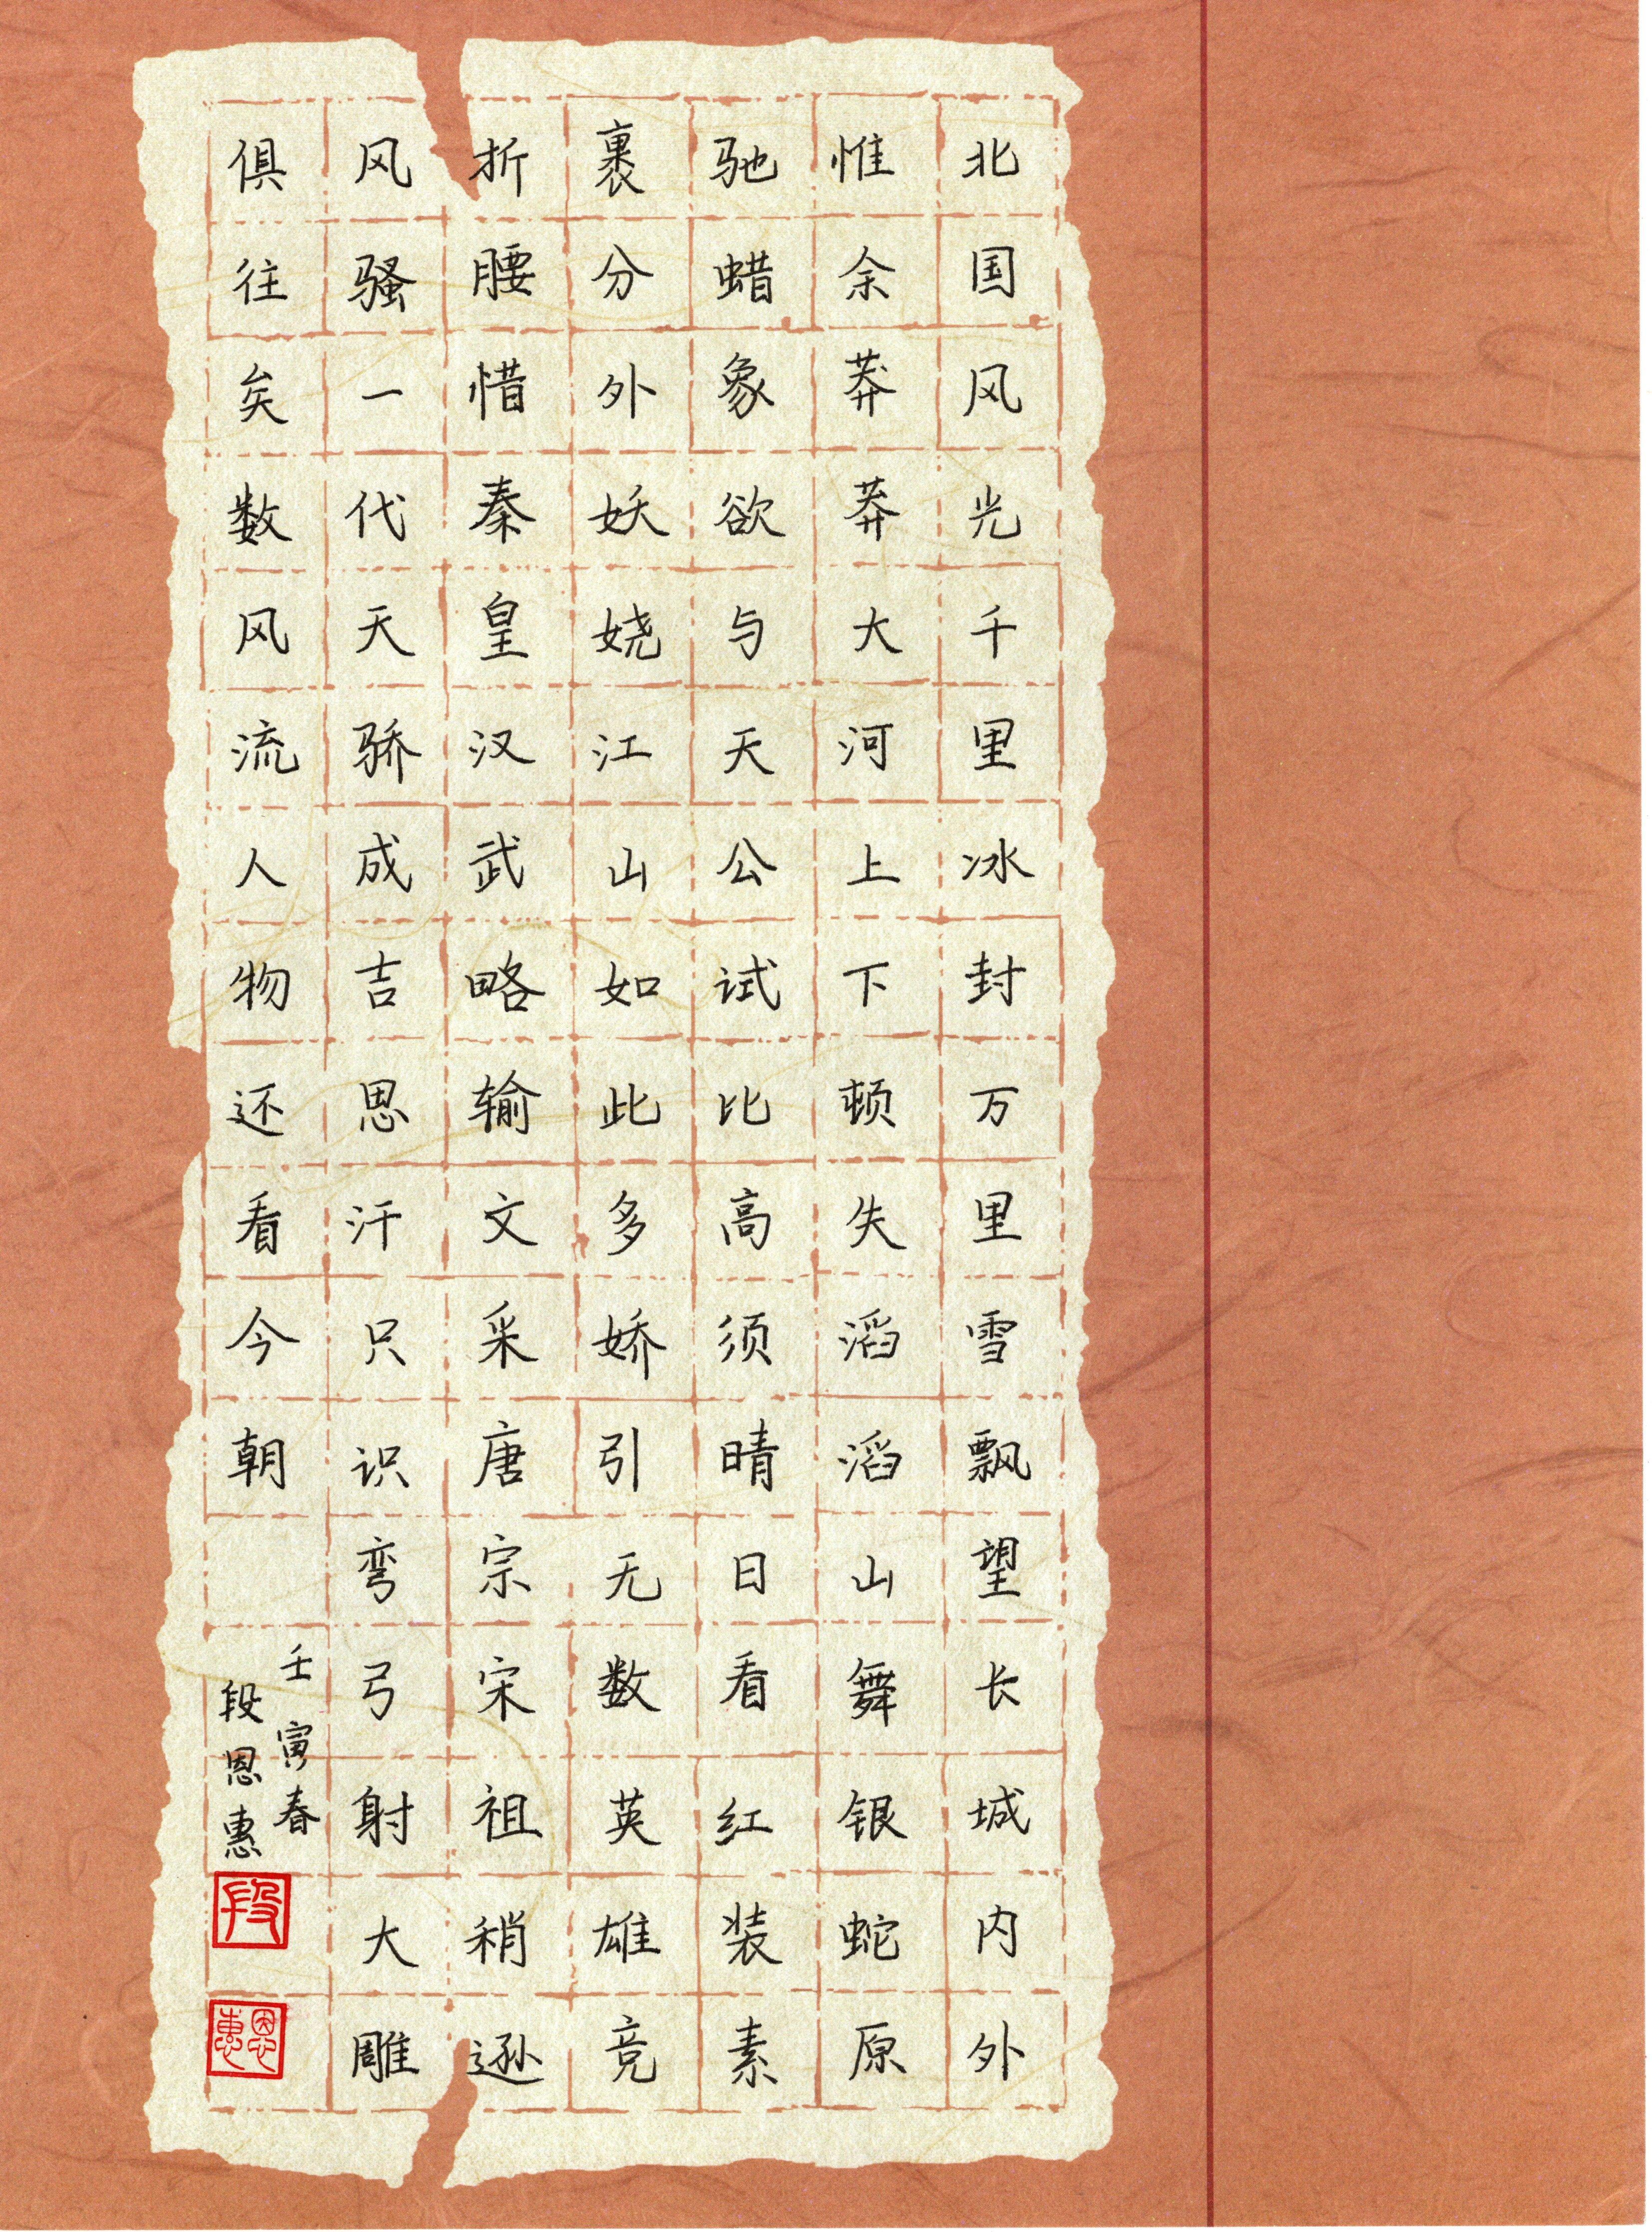 北国风光千里冰封万里雪飘望长城内外
惟余莽莽大河上下顿失滔滔山舞银蛇原
驰蜡象欲与天公试比高须晴日看红装素
裹分外妖娆江山如此多娇引无数英雄竞
折腰惜秦皇汉武略输文采唐宗宋祖稍逊
风骚一代天骄成吉思汗只识弯弓射大雕
俱往矣数风流人物还看今朝
壬寅春
段恩惠
段
恩惠